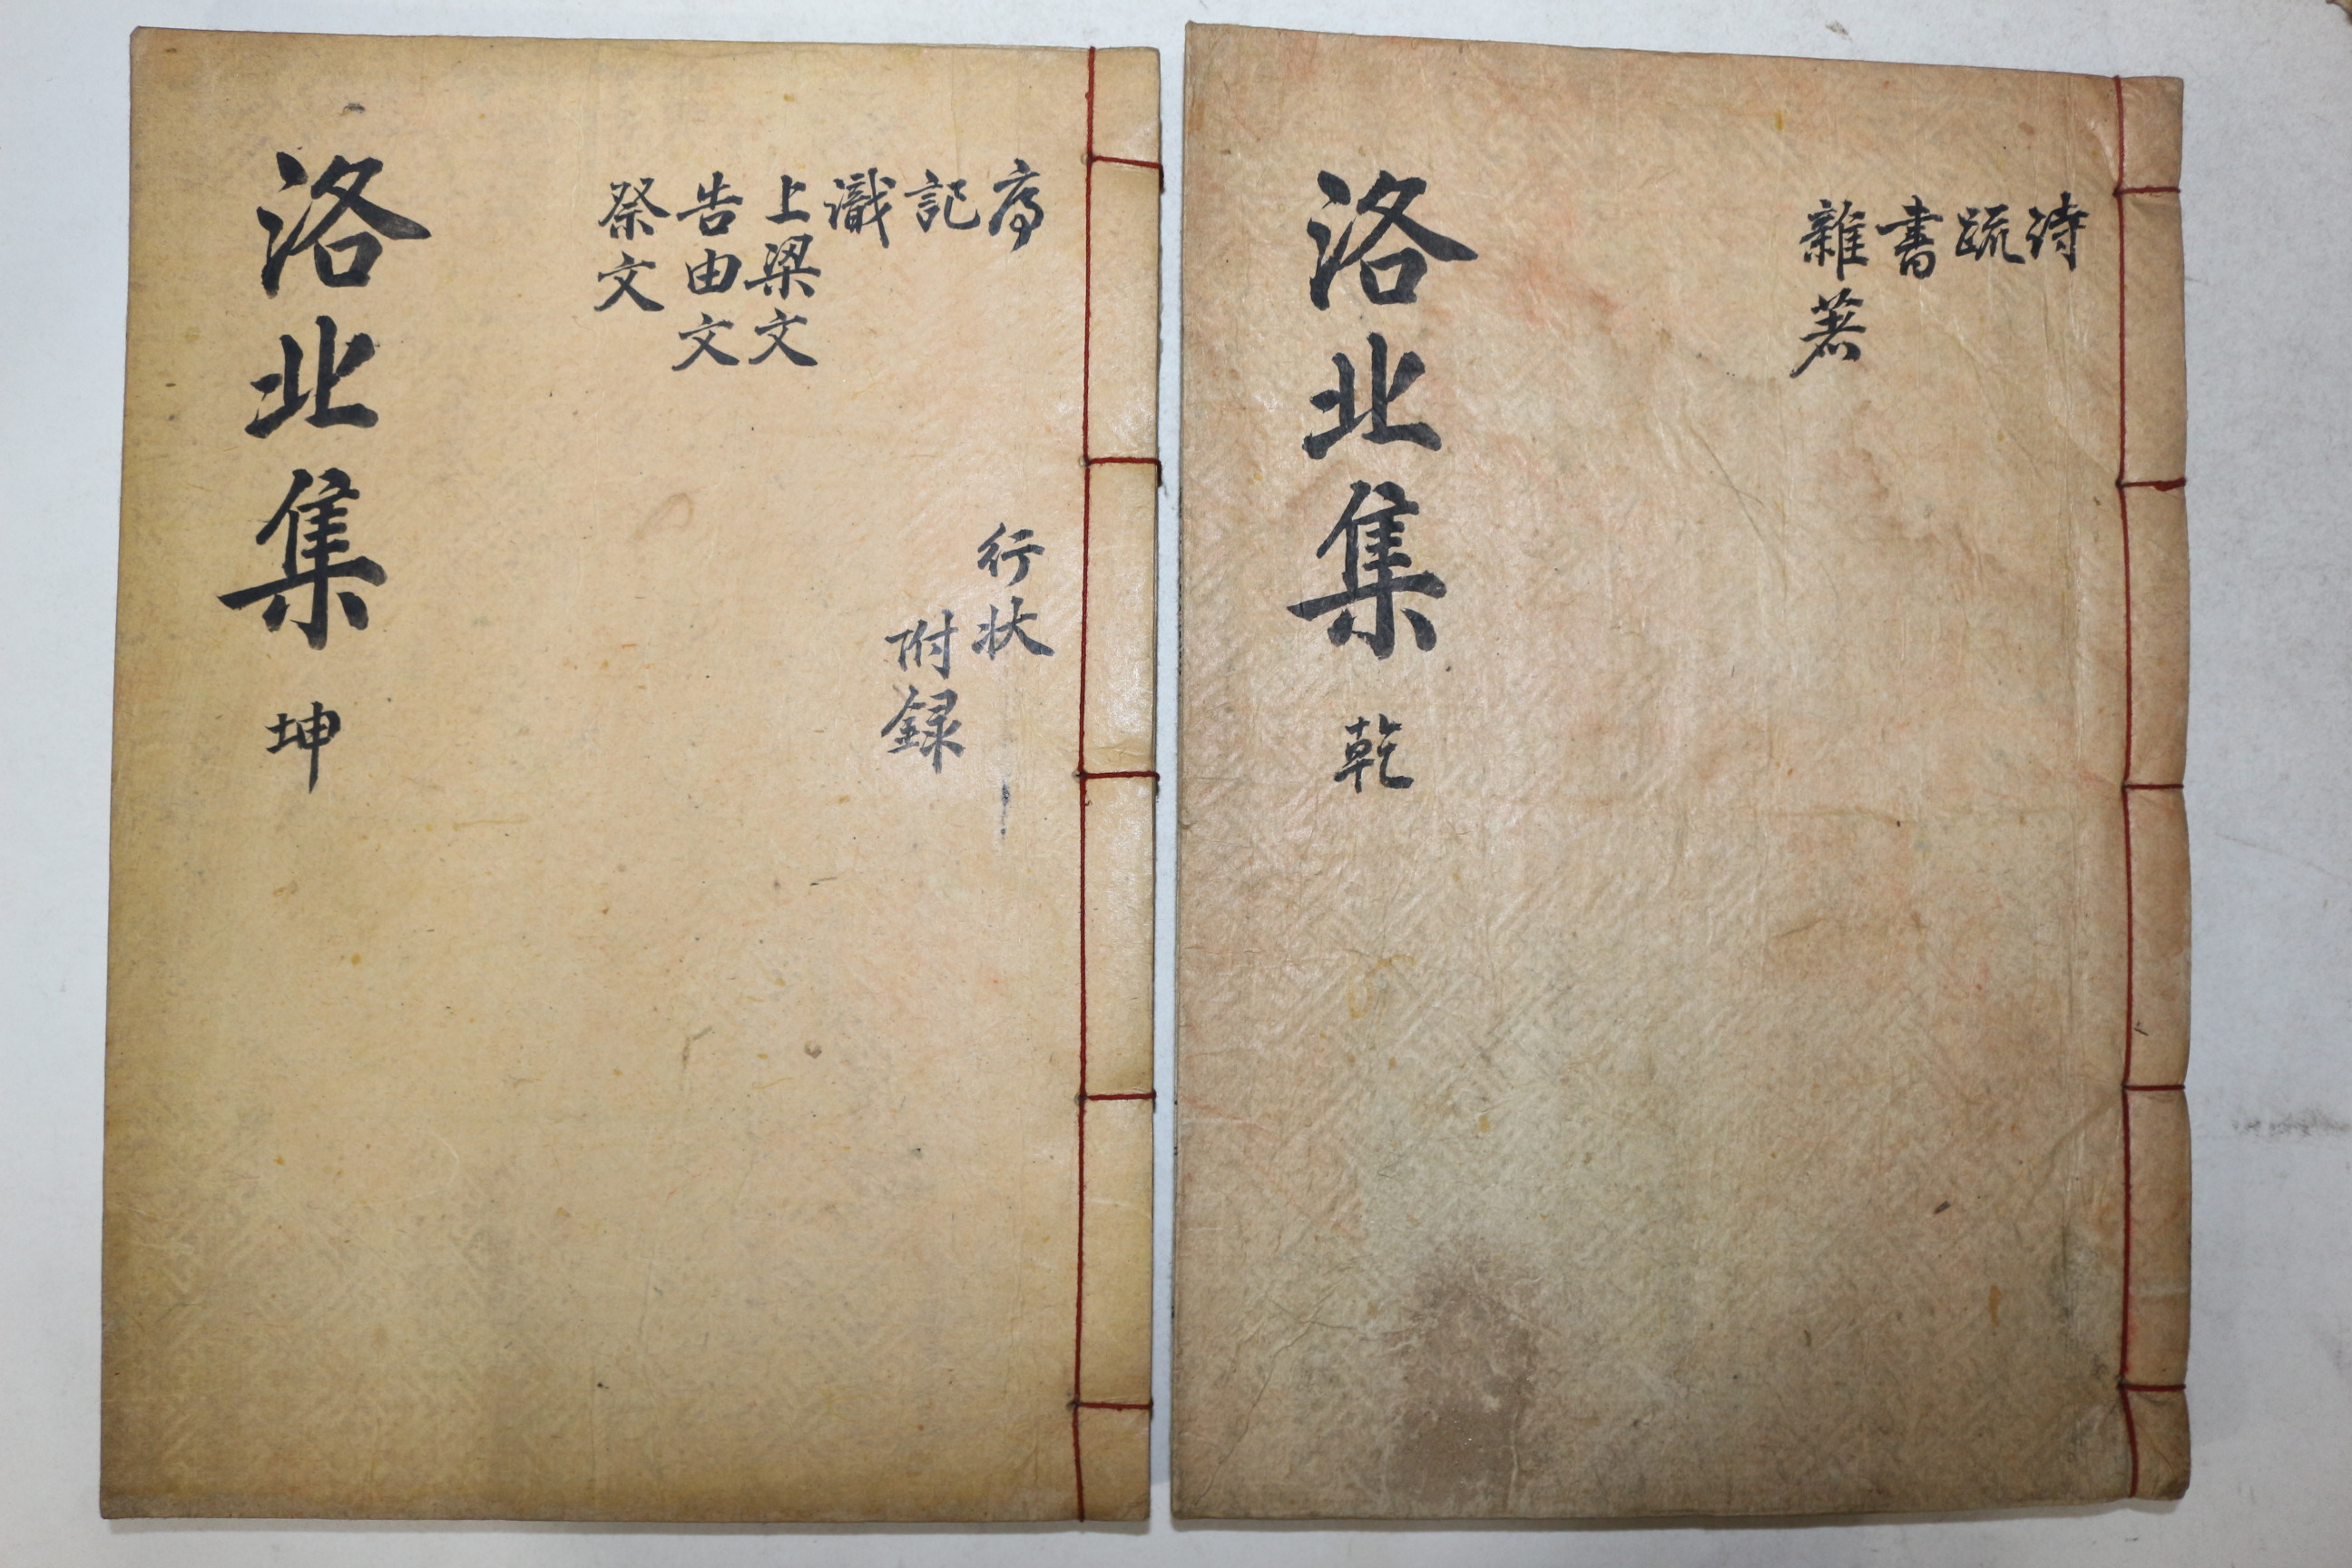 詩
疏
書
雜著
洛北集 乾
序
記
識
上梁文
告由文
祭文
行状
附録
洛北集 坤